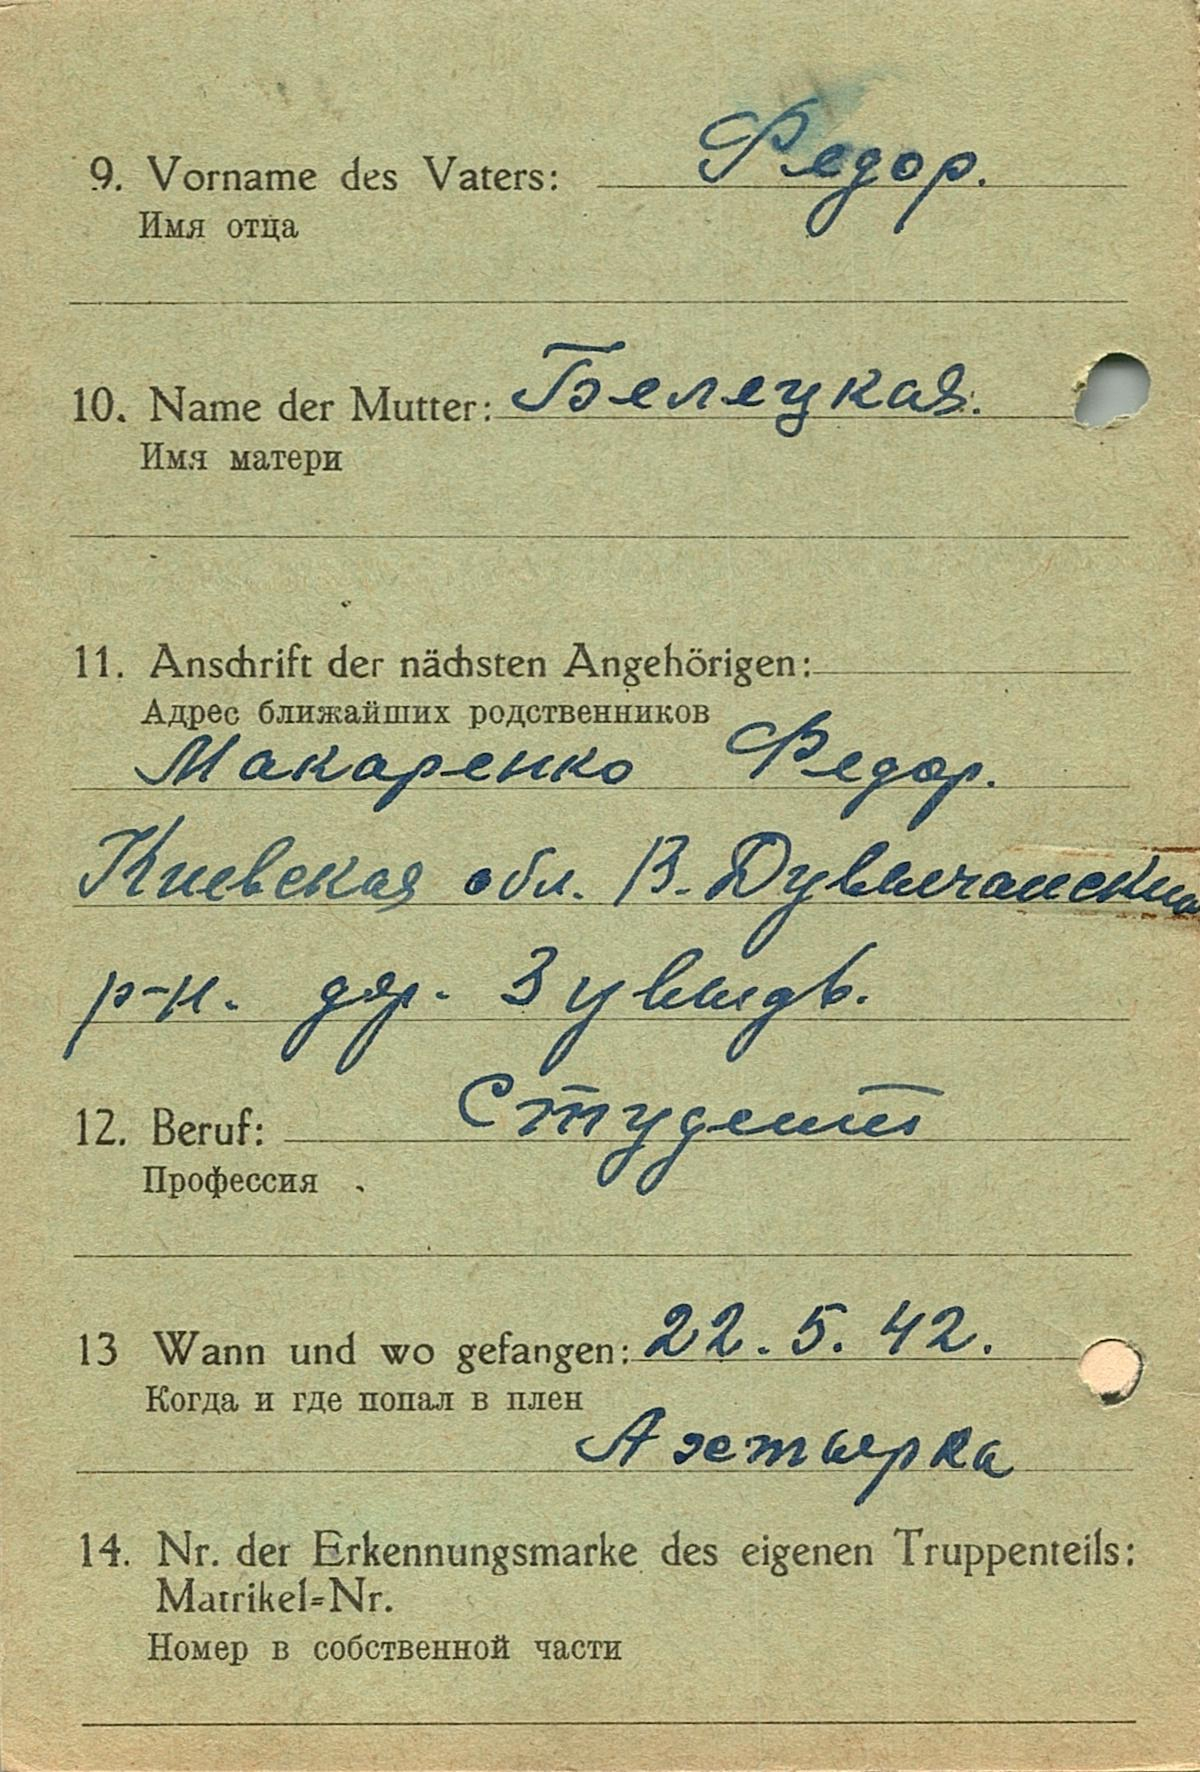 9. Vorname des Vaters: Федор.
Имя отца
10. Name der Mutter: Белецкая.
Имя матери
11. Anschrift der nächsten Angehörigen:
Адрес ближайших родственников
Макаренко Федор.
Киевская обл. В. Дувычанский
р-н. дяр.
12. Beruf: Студент
Профессия
13 Wann und wo gefangen: 22. 5. 42.
Когда и где попал в плен
Ахтырка
14. Nr. der Erkennungsmarke des eigenen Truppenteils:
Matrikel=Nr.
Номер в собственной части